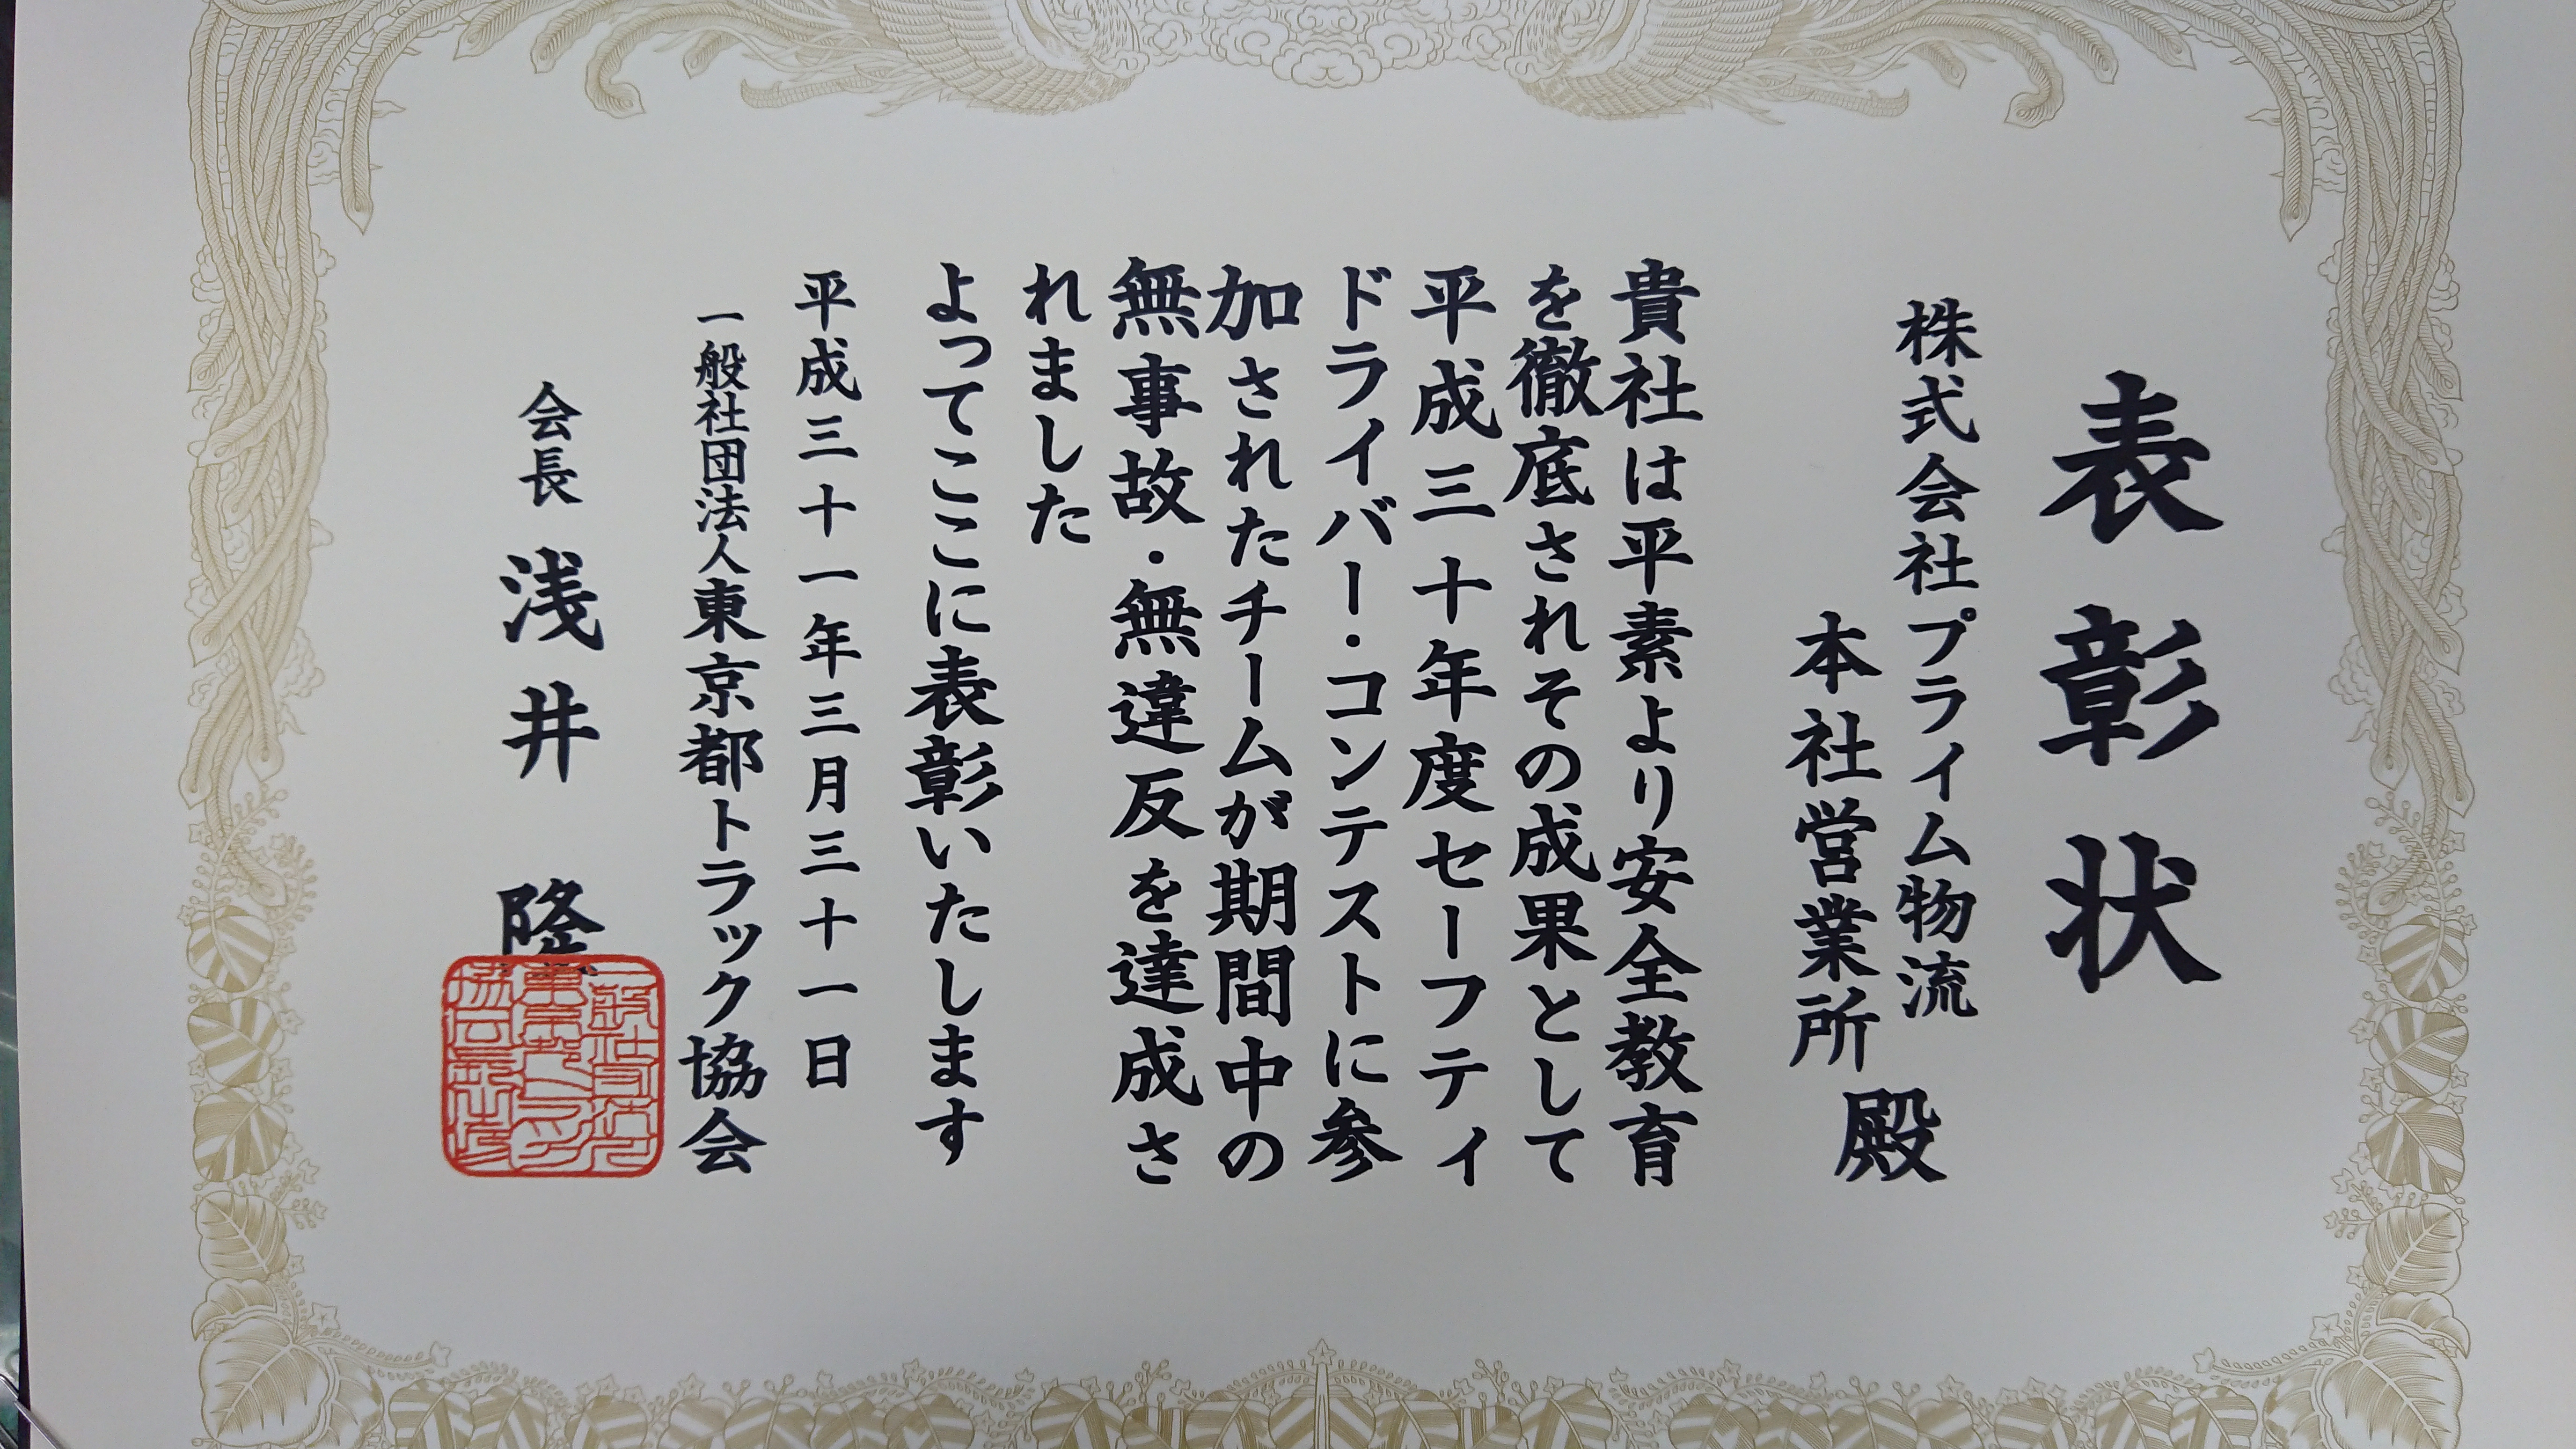 表彰状
株式会社プライム物流
本社営業所 殿
貴社は平素より安全教育
を徹底されその成果として
平成三十年度セーフティ
ドライバー・コンテストに参
加されたチームが期間中の
無事故・無違反を達成さ
れました
よってここに表彰いたします
平成三十一年三月三十一日
一般社団法人東京都トラック協会
会長 浅井 隆